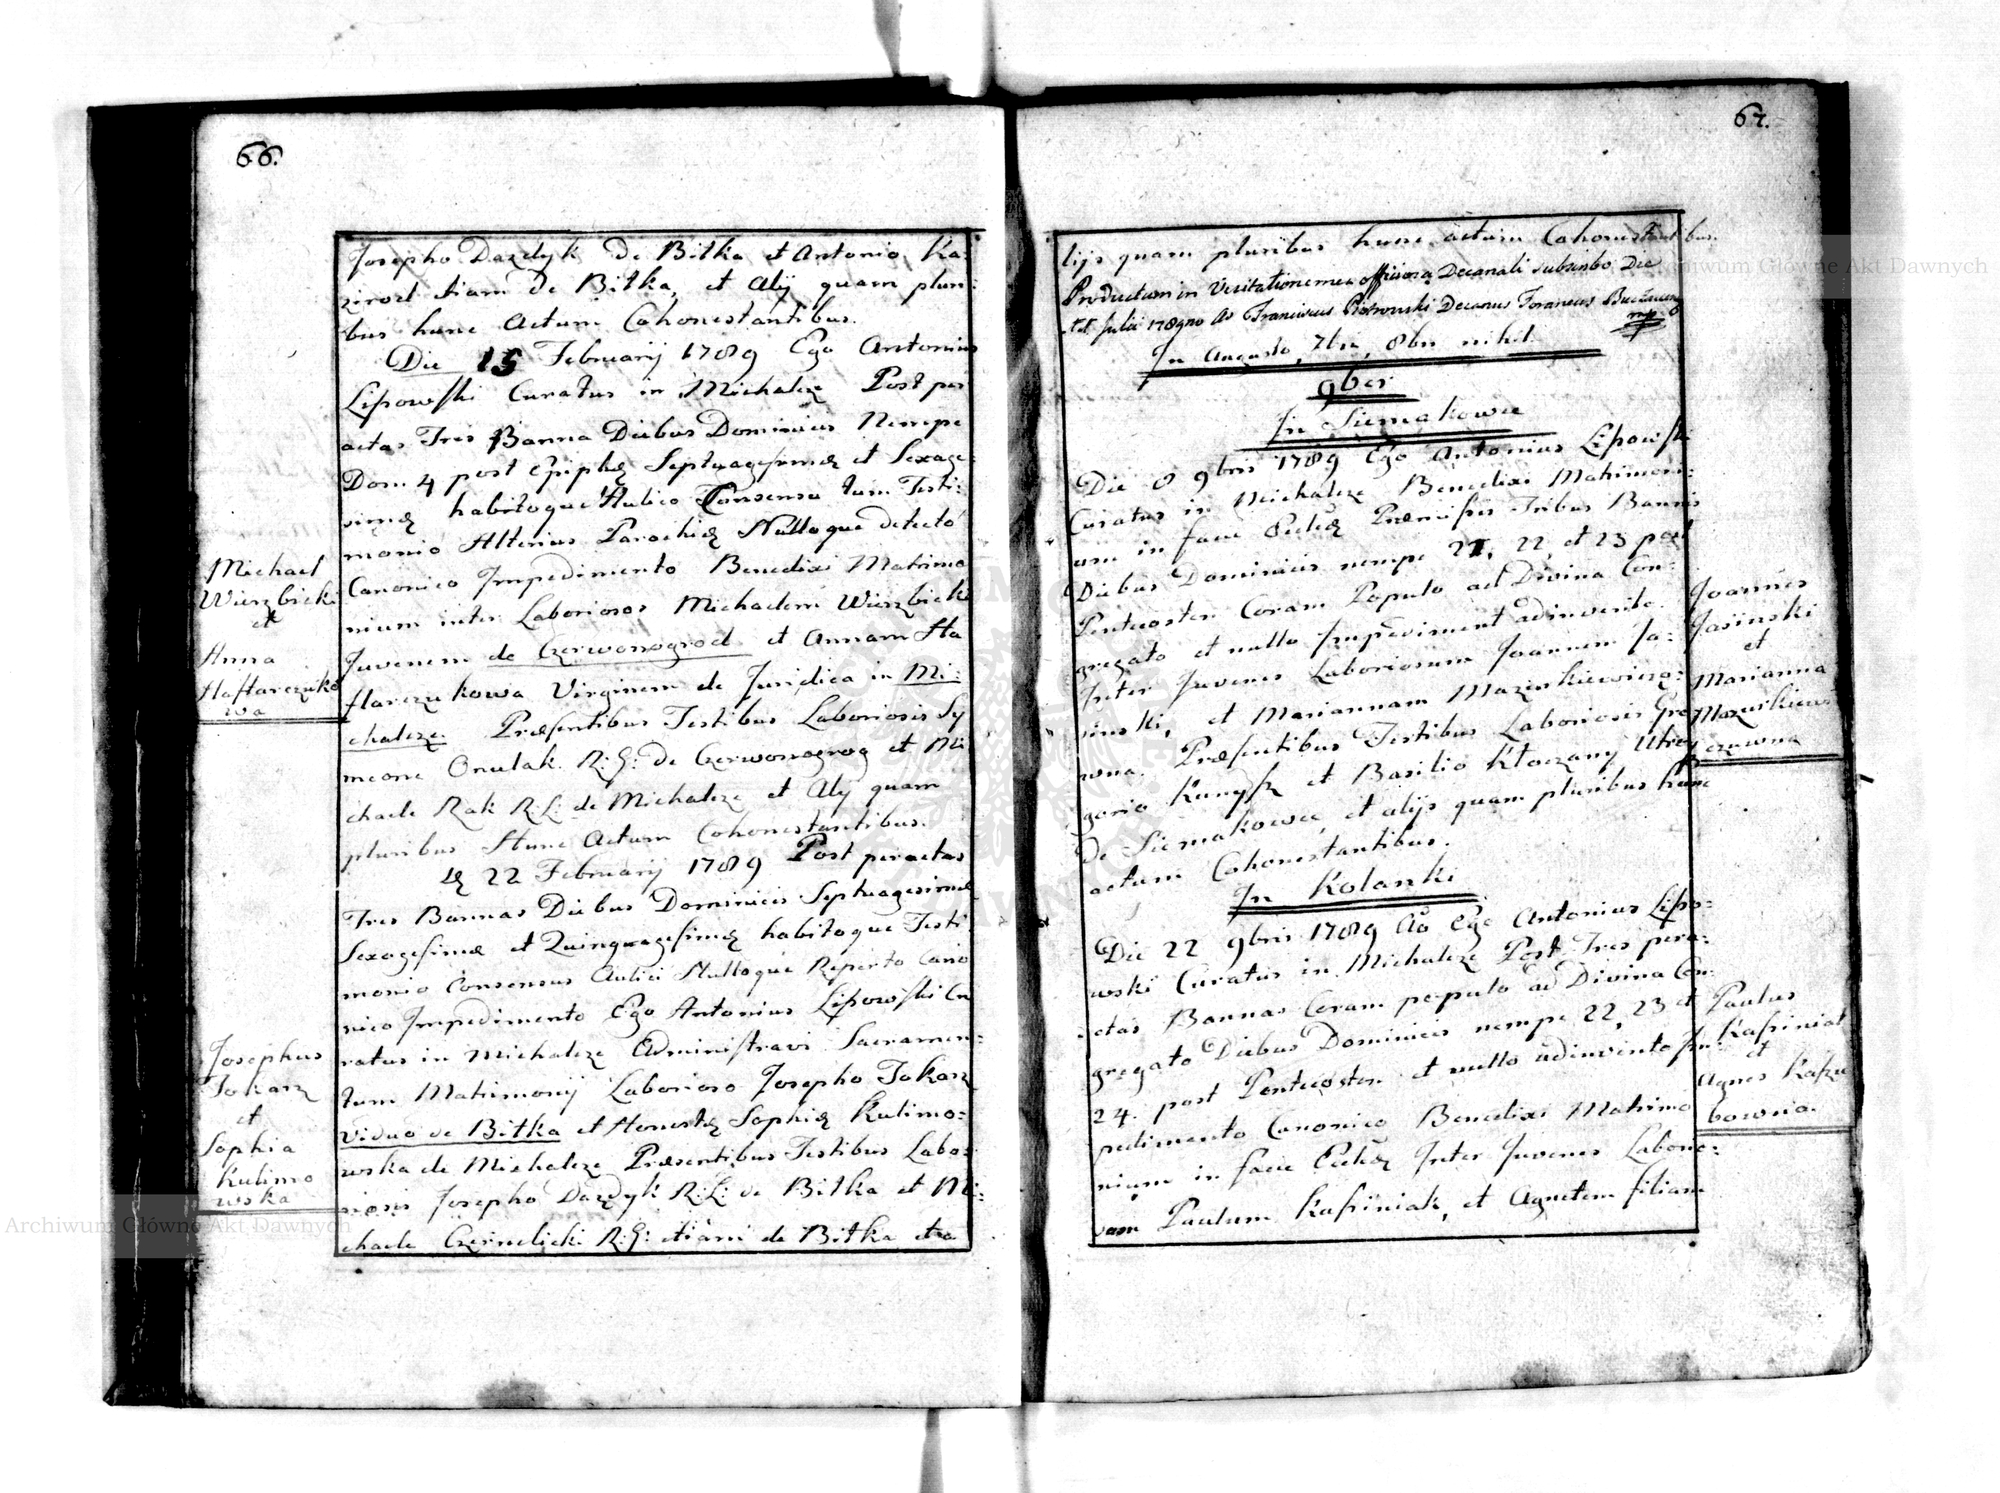 66.
Josepho Dazdyk De Bitka et Antonio Ka:
zirod etiam De Bitka, et Alij quam pluri:
bus hunc Actum Cohonestantibus.
Die 15 Februarij 1789 Ego Antonius
Lipowski Curatus in Michalcze Post per
actas Tres Banna Diebus Dominicis Nempe
Dom 4 post Epiphæ Septuagesimæ et Sexage:
simæ habitoque Aulico Consensu tum Testi:
monio Alterius Parochiæ Nulloque detecto
Canonico Impedimento Benedixi Matrimo
nium inter Laboriosos Michaelem Wierzbicki
Juvenem de Czerwonogrod et Annam Ha
ftarczukowa Virginem de Juridica in Mi:
chalcze. Præsentibus Testibus Laboriosis Sy
meone Onulak R:G: de Czerwonogrog et Mi
chaele Rak R:L: de Michalcze et Alij quam
pluribus Hunc Actum Cohonestantibus.
22 Februarij 1789 Post peractas
Tres Bannas Diebus Dominicis Septuagesimæ
Sexagesimæ et Quinquagesimæ habitoque Testi
monio Consensus Aulici Nulloque Reperto Cano
nico Impedimento Ego Antonius Lipowski Cu
ratus in Michalcze Administravi Sacramen:
tum Matrimonij Laborioso Josepho Tokarz
Viduo de Bitka et Honestæ Sophiæ Kulimo:
wska de Michalcze Præsentibus Testibus Labo:
riosis Josepho Dazdyk R:L: de Bitka et Mi:
chaele Czernelicki R:G: etiam de Bitka et a
Michael
Wierzbicki
et
Anna
Haftarczuko
wa
Josephus
Tokarz
et
Sophia
Kulimo
wska
67.
lijs quam pluribus hunc actum Cohonestantibus.
Productum in Visitatione mea officiosa Decanali subscribo Die
Julii 1789no Ao Franciscus Piotrowski Decanus Foraneus
mp
In Augusto, 7bri, 8bri nihil.
9bri
In Siemakowce
Die 8 9bris 1789 Ego Antonius Lipowski
Curatus in Michalcze Benedixi Matrimoni:
um in facie Eccleæ Præmissis Tribus Bannis
Diebus Dominicis nempe 21, 22, et 23 post
Pentecosten Coram Populo ad Divina Con:
gregato et nullo Impediment adinvento.
Inter Juvenes Laboriosum Joannem Ja:
sinski, et Mariannam Mazurkiewiczo:
wna. Præsentibus Testibus Laboriosis Gre
gorio Kunysz et Basilio Kloczany Utrius
De Siemakowce, et alijs quam pluribus hunc
actum Cohonestantibus.
In Kolanki
Die 22 9bris 1789 Ao Ego Antonius Lipo:
wski Curatus in Michalcze Post Tres pera:
ctas Bannas Coram populo ad Divina Con:
gregato Diebus Dominicis nempe 22, 23 et
24. post Pentecosten et nullo adinvento Im:
pedimento Canonico Benedixi Matrimo
nium in facie Eccleæ Inter Juvenes Laborio:
sum Paulum Kasiniak, et Agnetem filiam
Joannes
Jasinski
et
Marianna
Mazurkiewi
czowna
Paulus
Kasiniak
et
Agnes Kaszu
bowna.
Archiwum Główne Akt Dawnych
Archiwum Główne Akt Dawnych